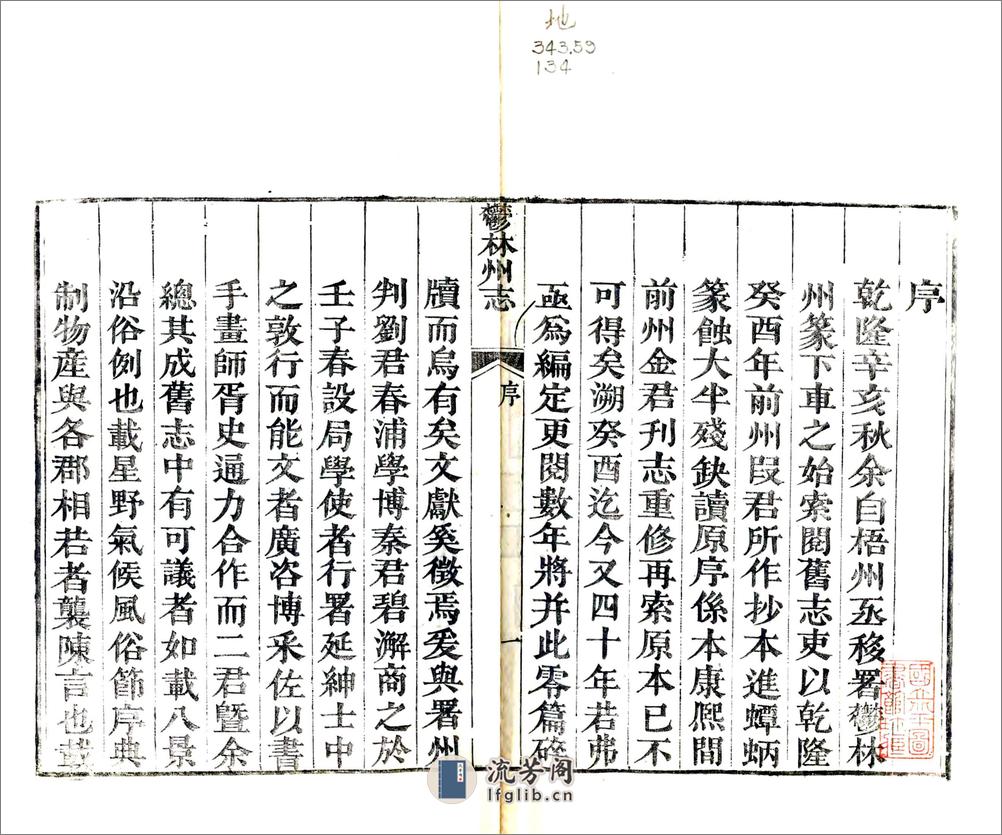 地
343.59
134
序
乾隆辛亥秋余自梧州丞移署鬱林
州篆下車之始索閱舊志吏以乾隆
癸酉年前州段君所作抄本進蟫蛃
篆蝕大半殘缺讀原序係本康熈間
前州金君刊志重修再索原本已不
可得矣溯癸酉迄今又四十年若弗
亟為編定更閱數年將并此零篇碎
鬱林州志
序
一
牘而烏有矣文獻奚徵焉爰與署州
判劉君春浦學博秦君碧澥商之於
壬子春設局學使者行署延紳士中
之敦行而能文者廣咨博采佐以書
手畫師胥史通力合作而二君曁余
總其成舊志中有可議者如載八景
沿俗例也載星野氣候風俗節序典
制物産與各郡相若者襲陳言也載
流芳阁
lfglib.cn